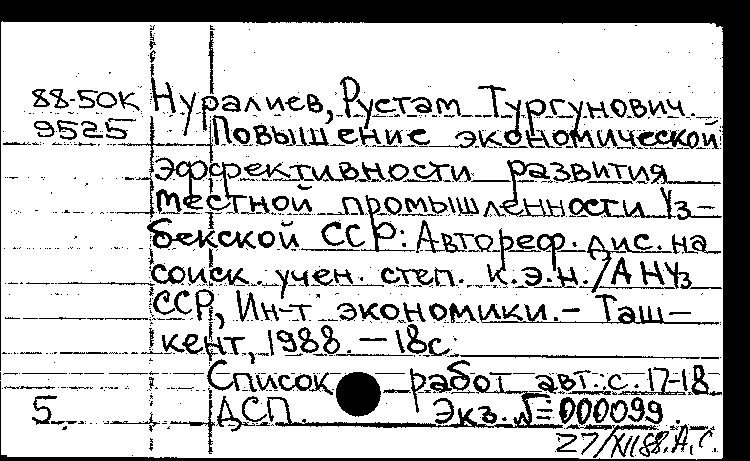 88-50К Нуралиев, Рустам Тургунович.
9525 Повышение экономической
эффективности развития
местной промышленности Уз-
бекской ССР: Автореф. дис. на
соиск. учен. степ. к.э.н. / АН Уз
ССР, Ин-т экономики. - Таш-
кент, 1988. - 18с.
Список работ авт.: с. 17-18
5. ДСП. Экз. № 000099.
27/XII 88. А. С.